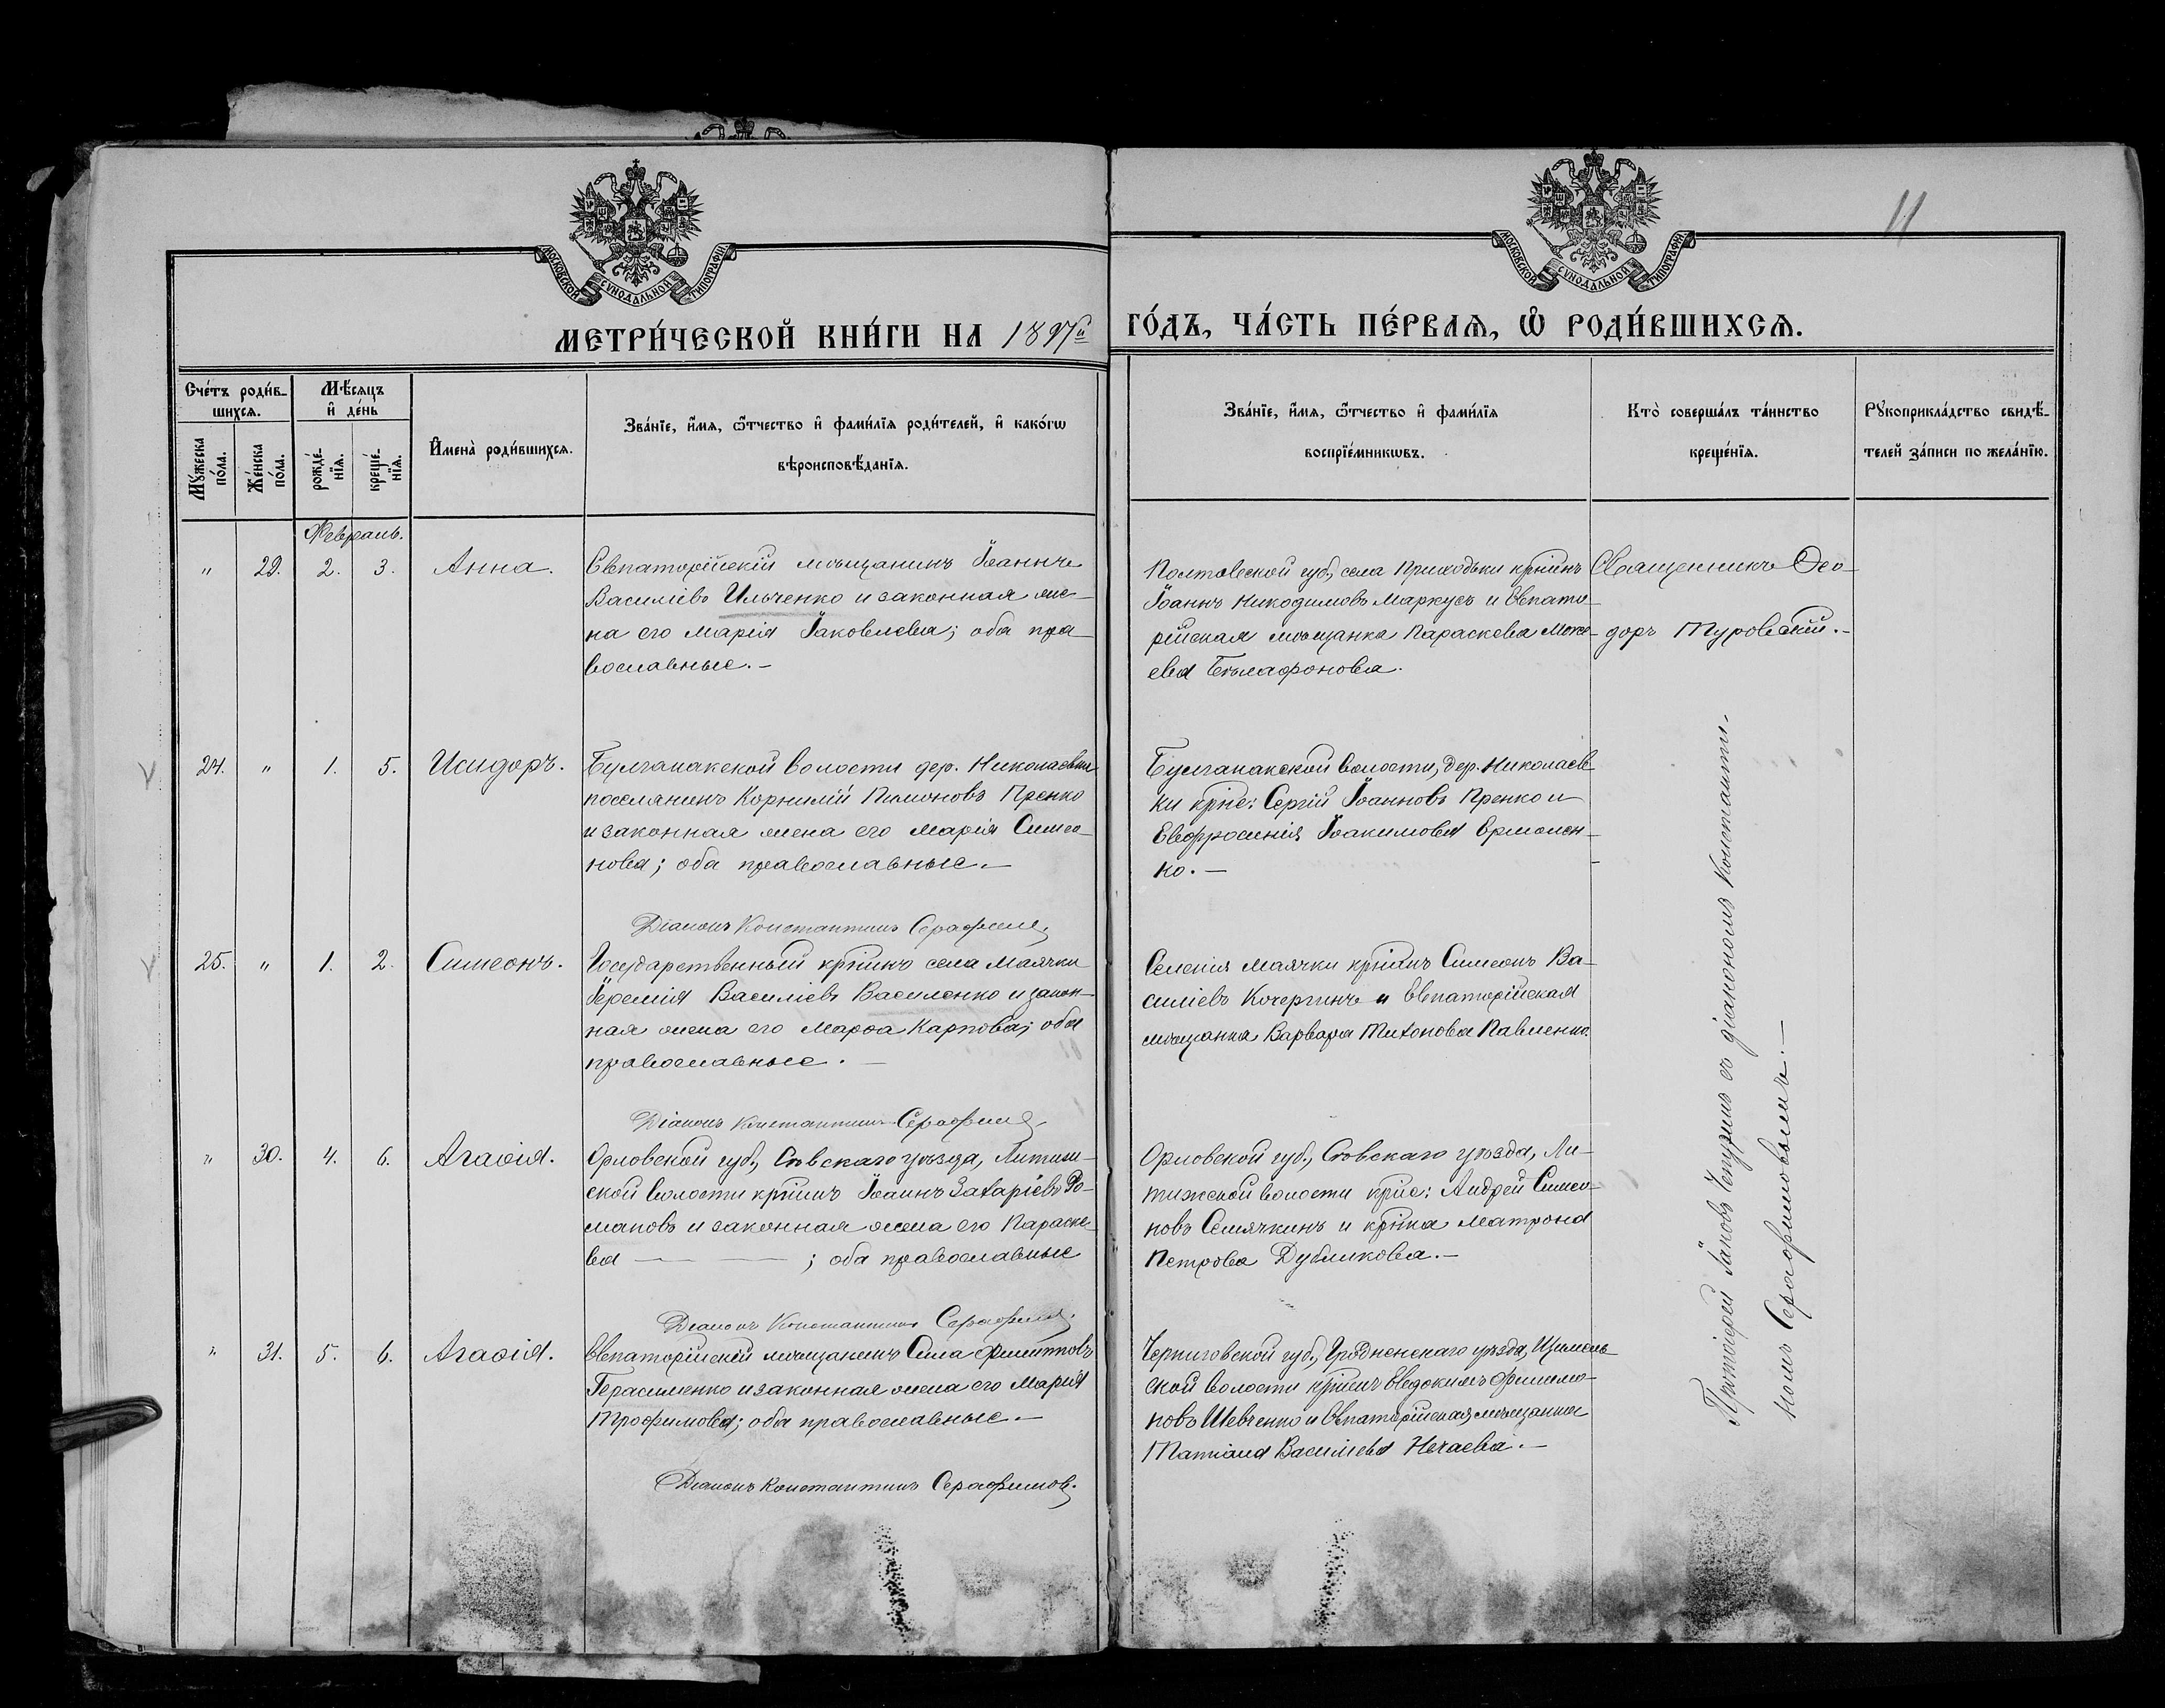 11
МОСКОВСКОЙ СѴНОДАЛЬНОЙ ТИПОГРАФІИ
МОСКОВСКОЙ СѴНОДАЛЬНОЙ ТИПОГРАФІИ
МЕТРИ́ЧЕСКОЙ КНИ́ГИ НА 1897й ГО́ДЪ, ЧА́СТЬ ПЕ́РВАѦ, Ѡ҆ РОДИ́ВШИХСѦ.
Сче́тъ роди́в-
шихсѧ.
Мꙋ́жеска
по́ла.
Же́нска
по́ла.
Мѣ́сѧцъ
и҆ де́нь
рожде́-
нїѧ.
креще́-
нїѧ.
И҆мена̀ роди́вшихсѧ.
Зва́нїе, и҆́мѧ, ѻ҆́тчество и҆ фами́лїѧ роди́телей, и҆ како́гѡ
вѣроисповѣ́данїѧ.
Зва́нїе, и҆́мѧ, ѻ҆́тчество и҆ фами́лїѧ
воспрїе́мникѡвъ.
Кто̀ соверша́лъ та́инство
креще́нїѧ.
Рꙋкоприкла́дство свидѣ́-
телей за́писи по жела́нїю.
Февраль.
" 29. 2. 3. Анна.
Евпаторійскій мѣщанинъ Іоаннъ
Василіевъ Ильченко и законная же-
на его Марія Іаковлева; оба пра-
вославные.-
Полтавской губ., села Приходьки крнинъ
Іоаннъ Никодимовъ Маркусъ и Евпато-
рійская мѣщанка Параскева
ева
Священникъ Ѳео-
доръ Туровскій.-
24. " 1. 5. Исидоръ.
Булганакской волости дер. Николаевки
поселянинъ Корнилій Пренко
и законная жена его Марія Симео-
нова; оба православные.-
Булганакской волости, дер. Николаев-
ки крне: Сергій Іоанновъ Пренко и
Евфросинія Іоакимова Ермолен-
ко.-
Діаконъ Константинъ Серафим
25. " 1. 2. Симеонъ.
Государственный крнинъ села Маячки
Іеремія Василіевъ Василенко и закон-
ная жена его Марѳа Карпова; оба
православные.-
Селенія Маячки крнинъ Симеонъ Ва-
силіевъ Кочергинъ и Евпаторійская
мѣщанка Варвара Тихонова Павленко.
Діаконъ Константинъ Серафим
" 30. 4. 6. Агаѳія.
Орловской губ., Сѣвскаго уѣзда, Литиж-
ской волости крнинъ Іоаннъ Захаріевъ Ро-
мановъ и законная жена его Параске-
ва — — ; оба православные
Орловской губ., Сѣвскаго уѣзда, Ли-
тижской волости крне: Андрей Симео-
новъ Семячкинъ и крнка Матрона
Петрова Дубликова.-
Діаконъ Константинъ Серафим
" 31. 5. 6. Агаѳія.
Евпаторійскій мѣщанинъ Сила Филипповъ
Герасименко и законная жена его Марія
Трофимова; оба православные.-
Черниговской губ., уѣзда,
ской волости крнинъ Евдокимъ Филимо-
новъ Шевченко и Евпаторійская мѣщанка
Татіана Василіева Нечаева.-
Діаконъ Константинъ Серафимовъ.
Протоіерей Іаковъ Чепуринъ съ діакономъ Константи-
номъ Серафимовымъ.-